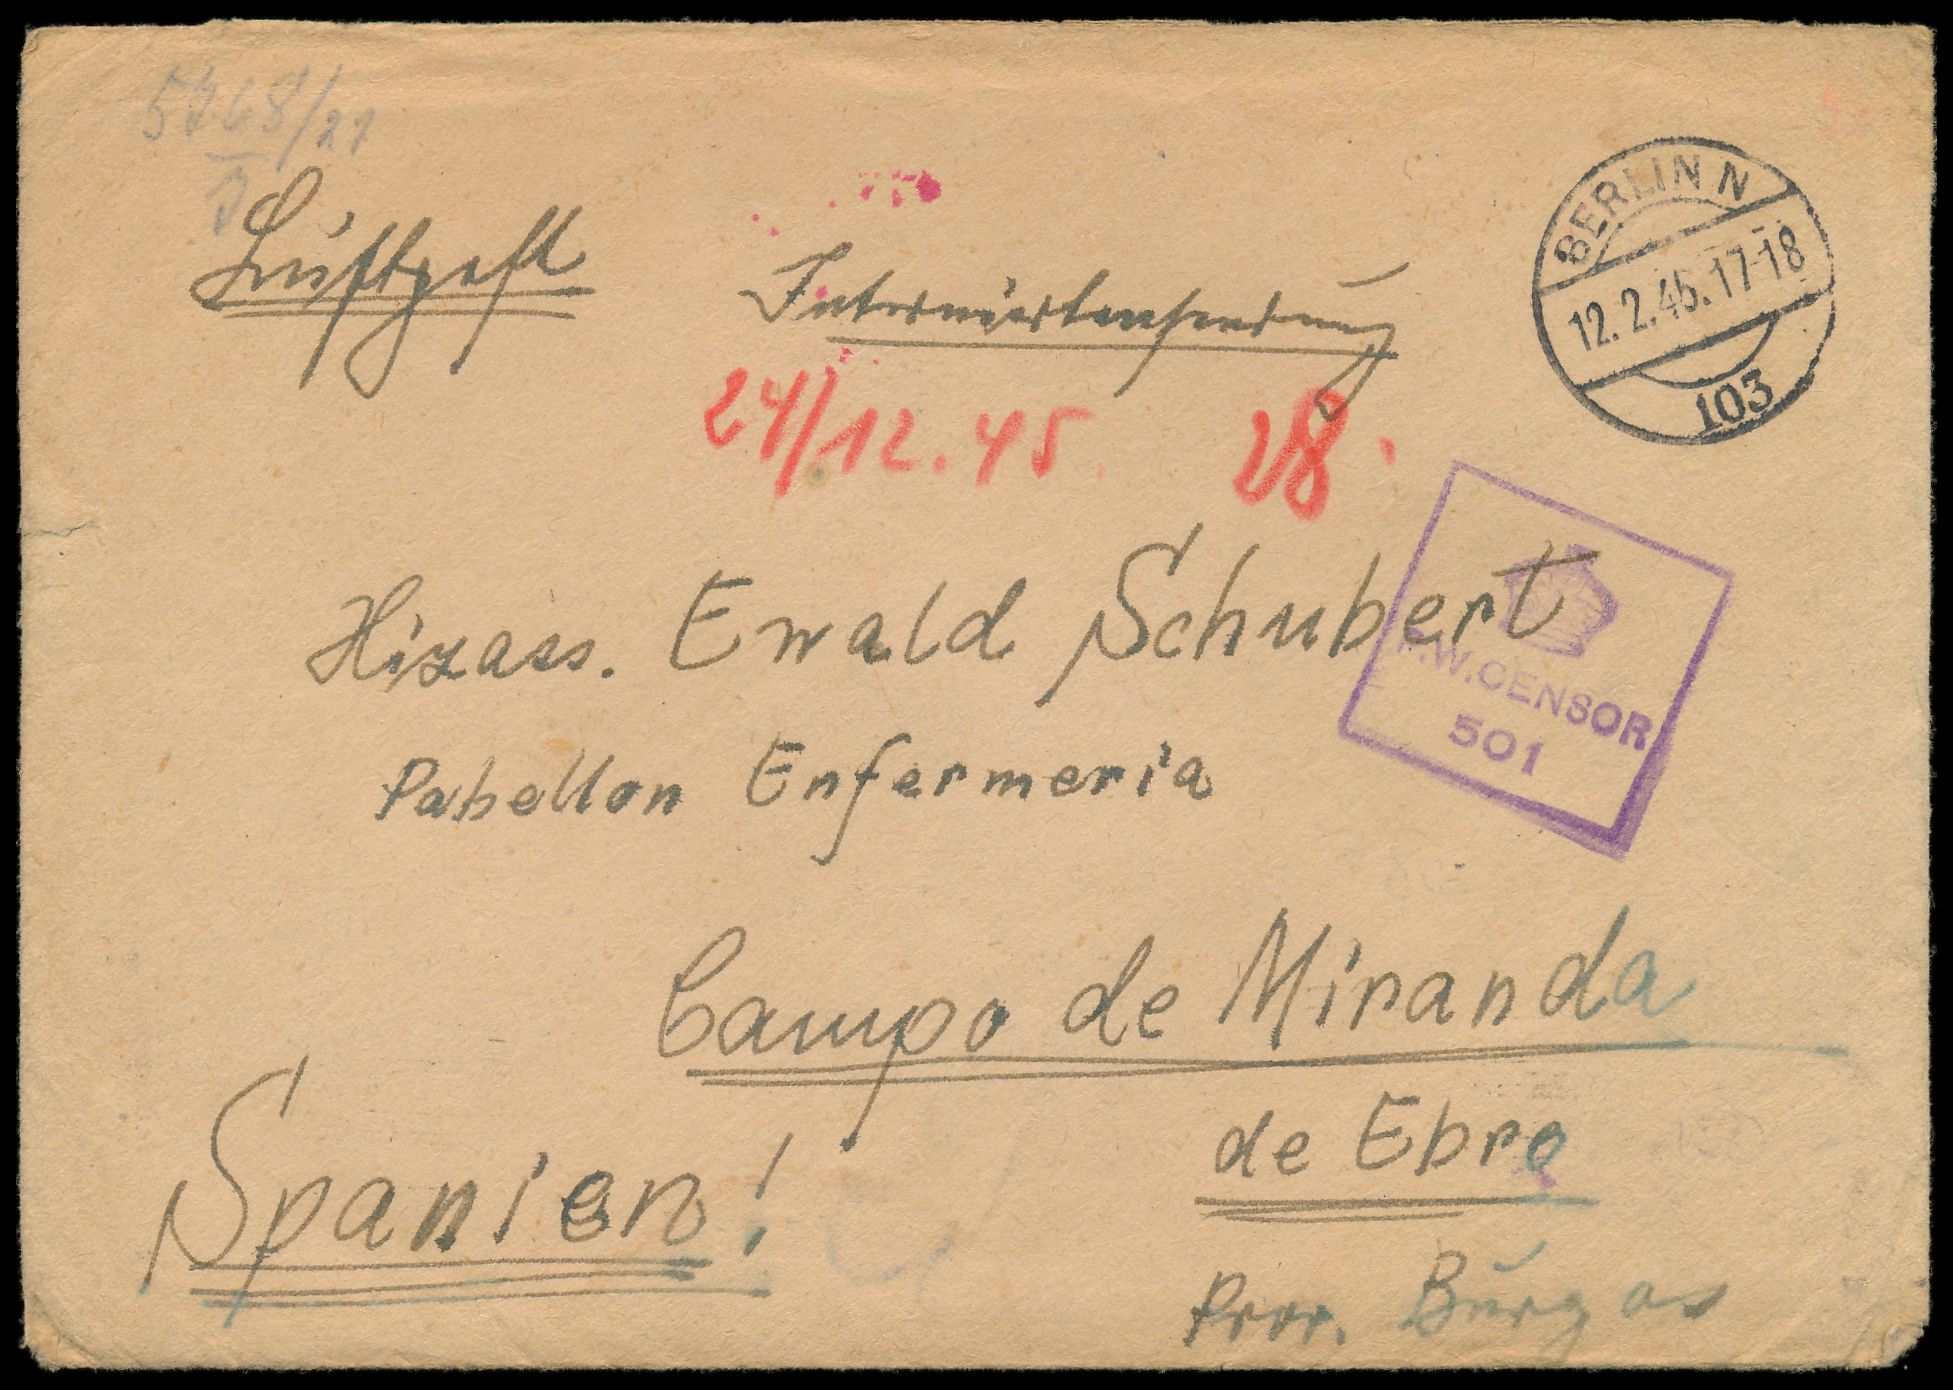 5768/21
Luftpost
Interniertensendung
BERLIN N
12.2.45.17-18
103
24/12.45. 28.
Hizass. Ewald Schubert
P.W. CENSOR
501
Pabellon Enfermeria
Campo de Miranda
de Ebro
Spanien!
Prov. Burgos